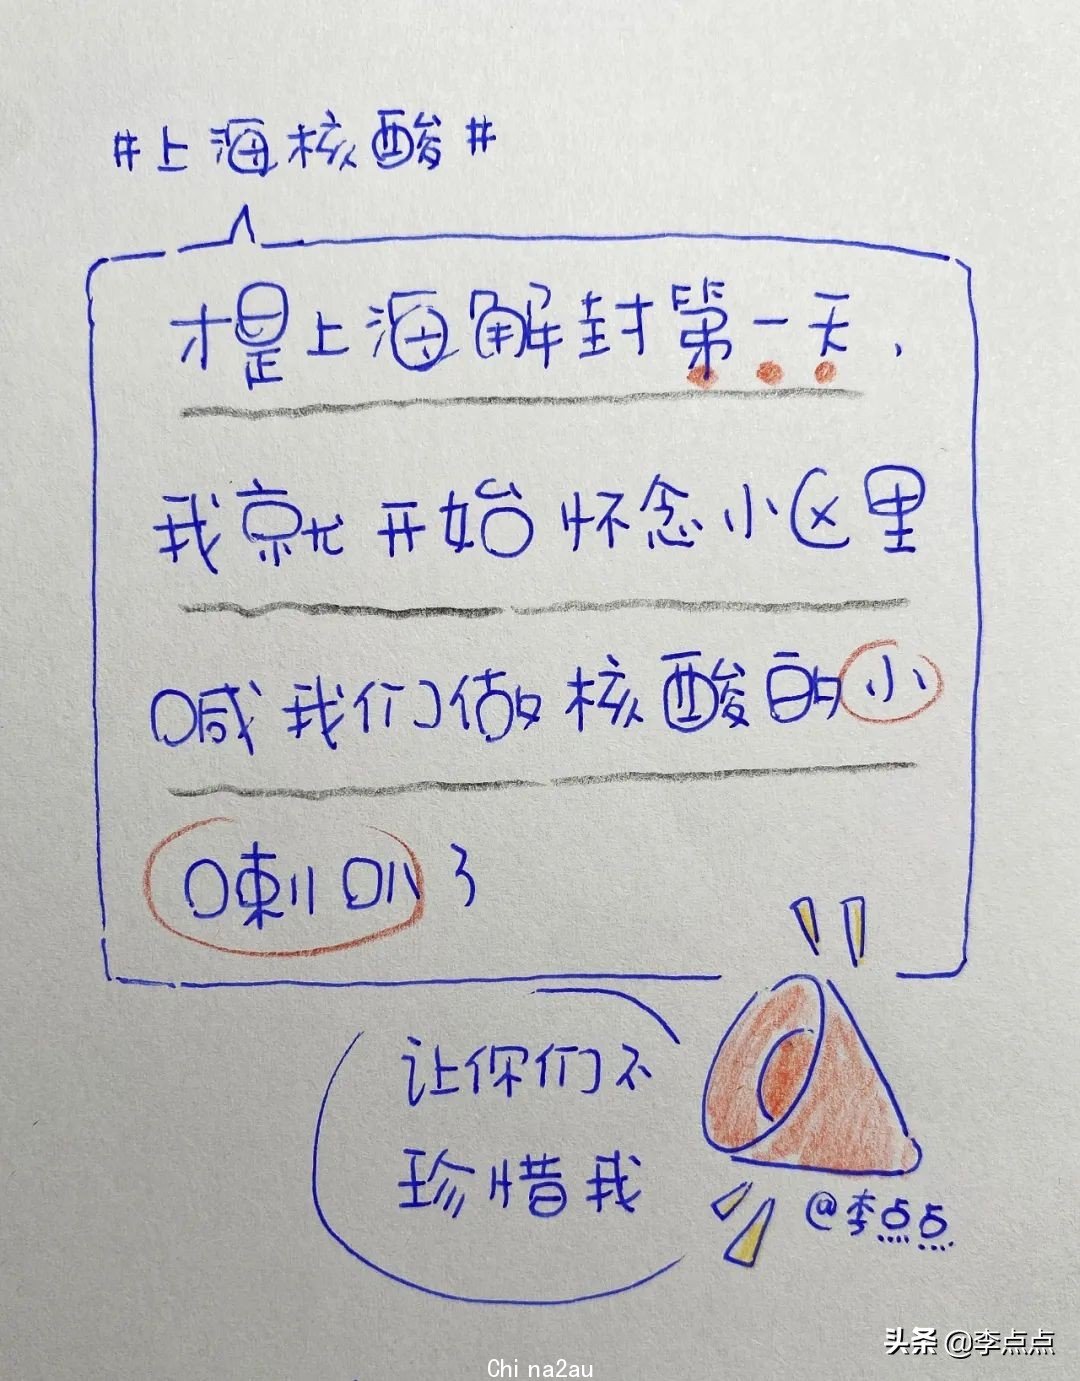 #上海核酸#
才是上海解封第一天，
我就开始怀念小区里
喊我们做核酸的小
喇叭了
让你们不
珍惜我
@李点点
头条 @李点点
China2au